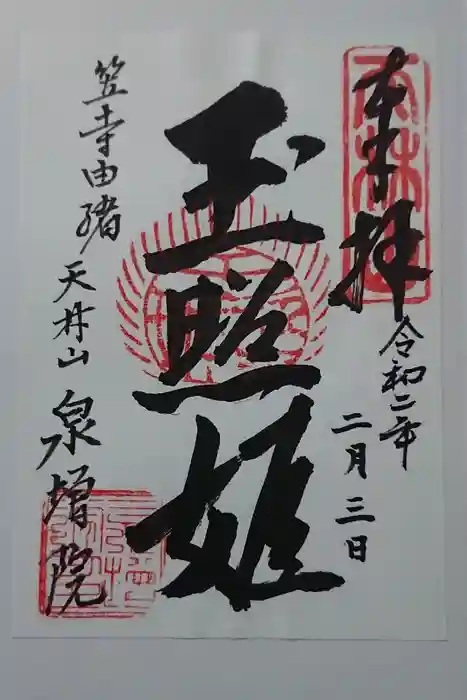 奉拝
令和二年
二月三日
玉照姫
笠寺由緒
天林山 泉増院